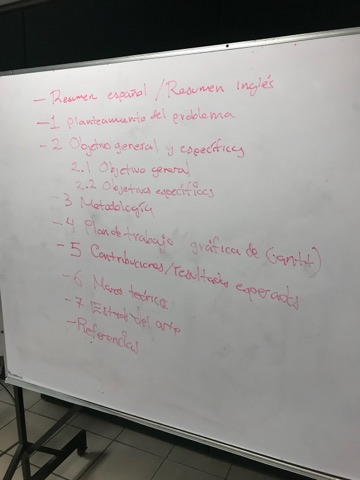 - Resumen español / Resumen Inglés
- 1 planteamiento del problema
- 2 Objetivo general y específicos
2.1 Objetivo general
2.2 Objetivos específicos
- 3 Metodología
- 4 Plan de trabajo gráfica de (Gantt)
- 5 Contribuciones/resultados esperados
- 6 Marco teórico
- 7 Estado del arte
- Referencias